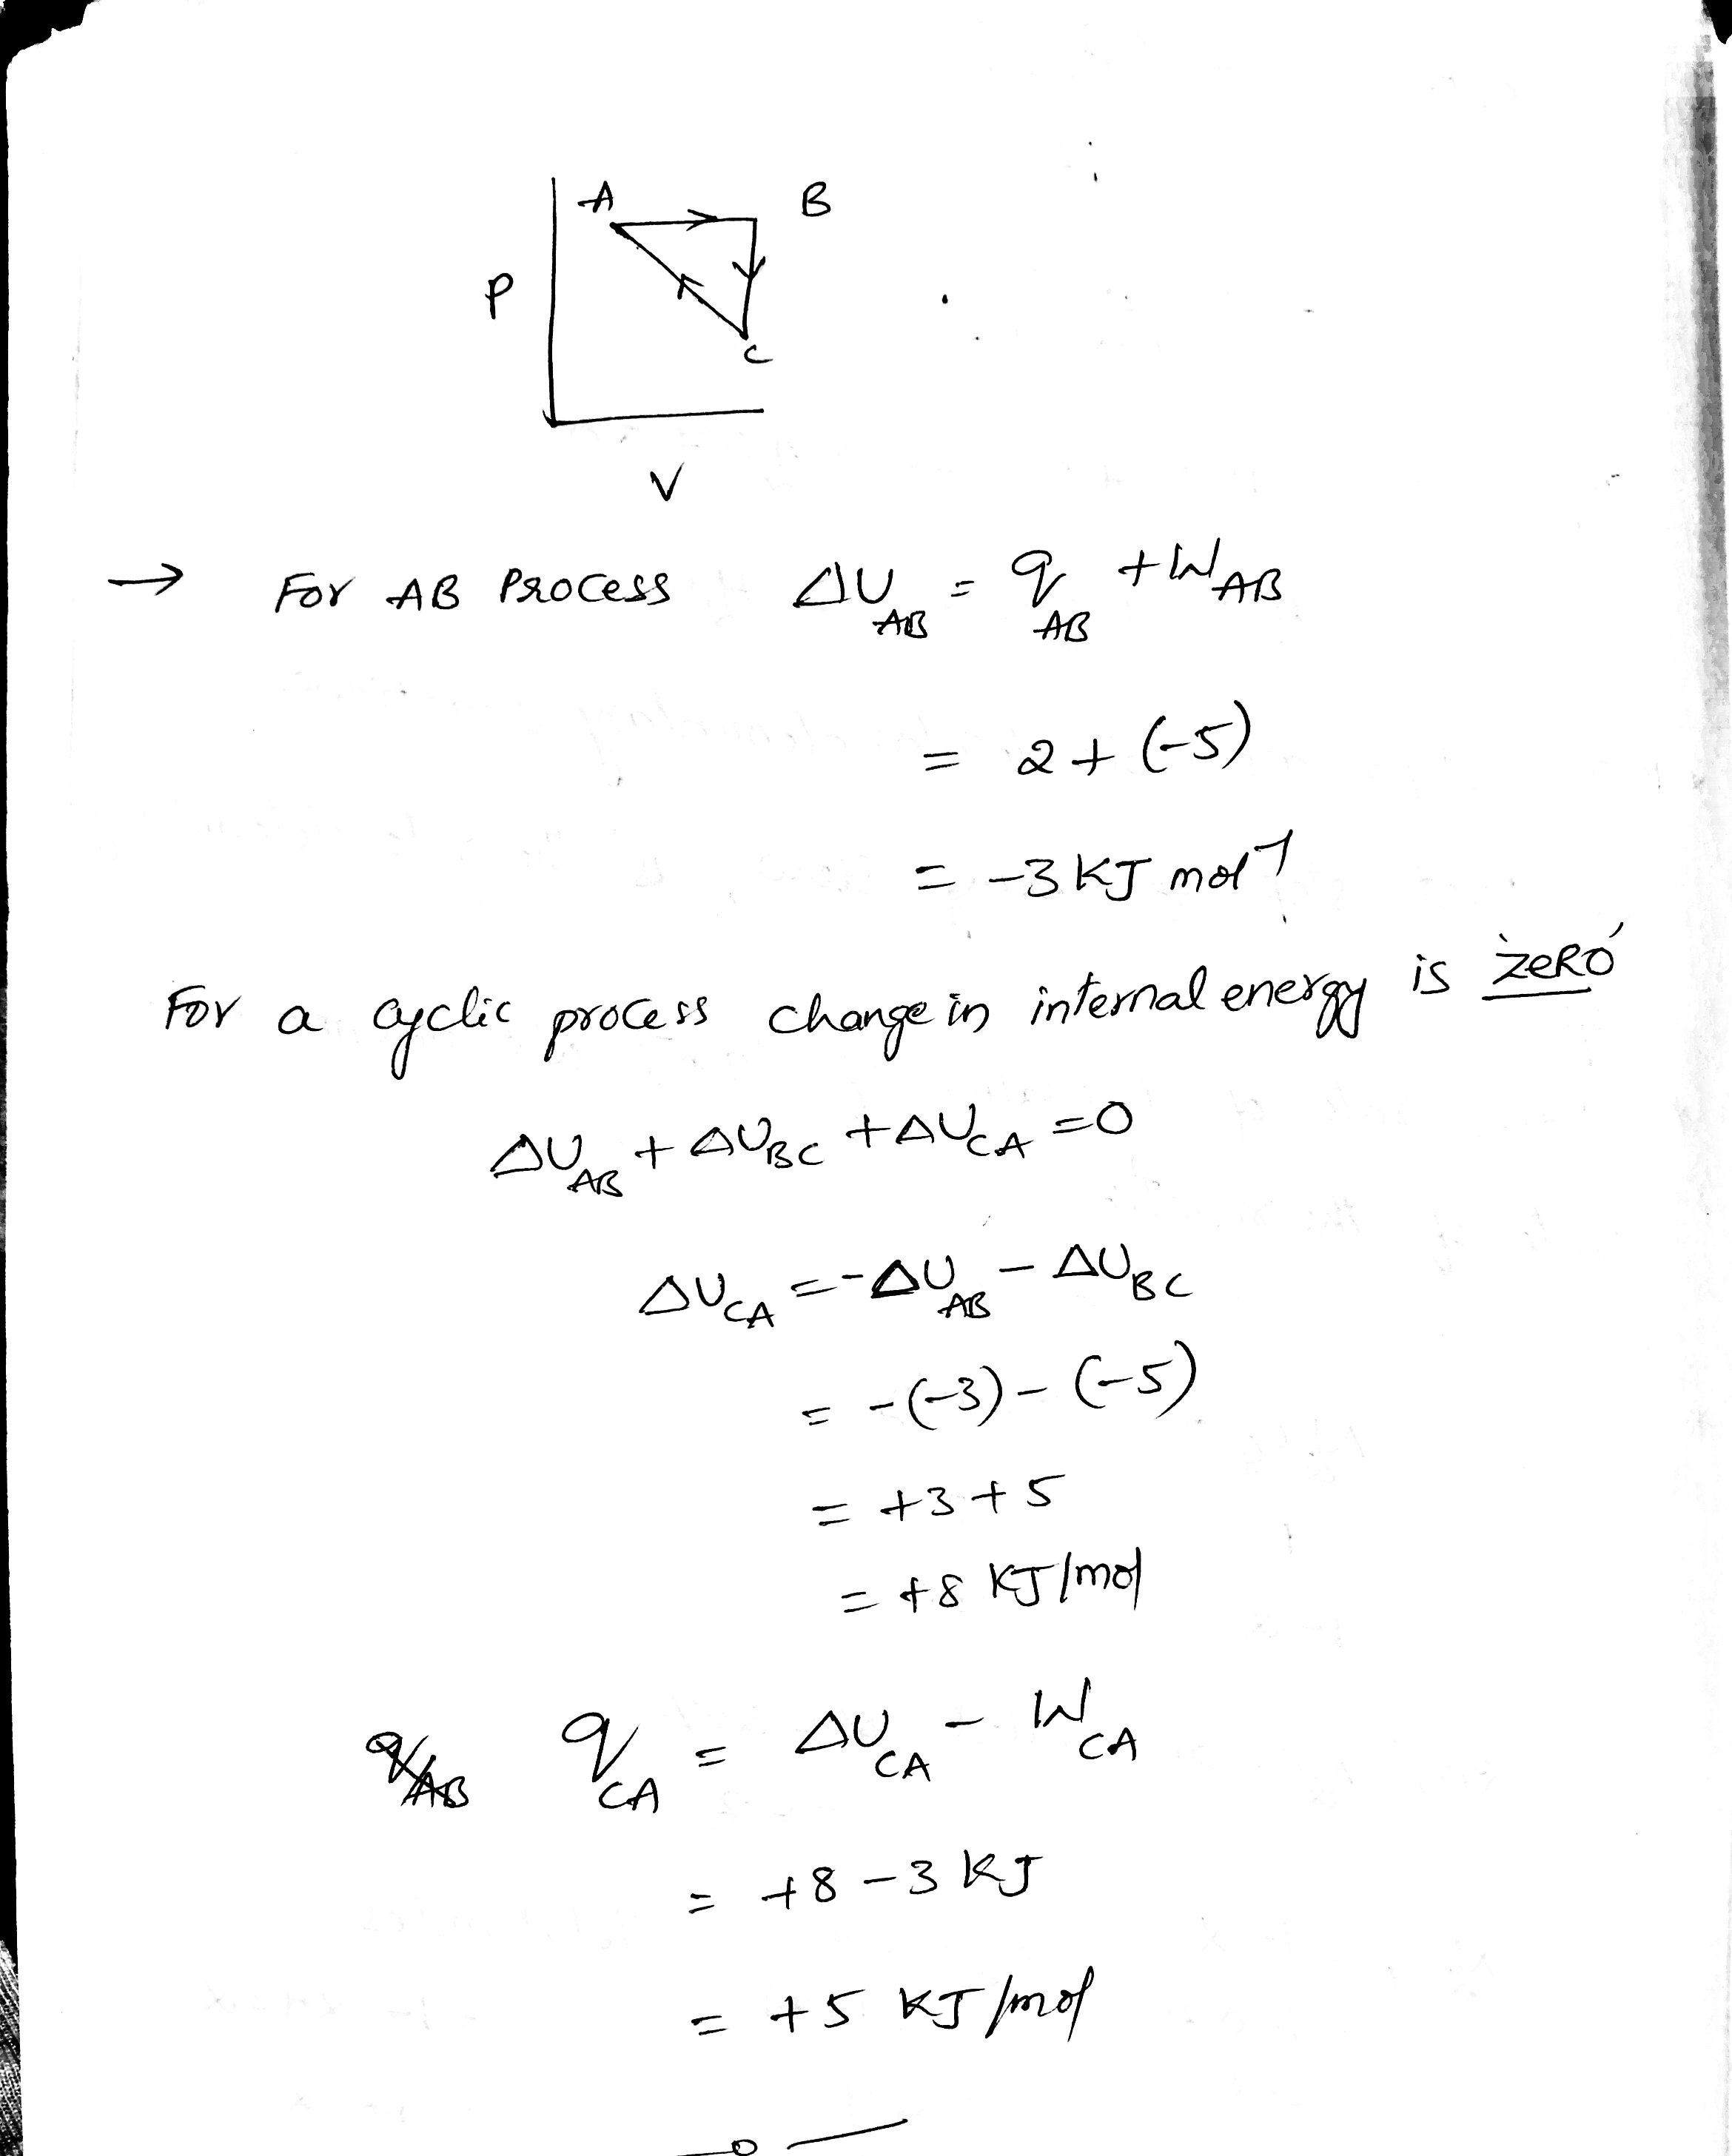 A B
P
C
V
→ For AB Process ΔU_AB = q_AB + W_AB
= 2 + (-5)
= -3 KJ mol⁻¹
For a cyclic process change in internal energy is zeRo
ΔU_AB + ΔU_BC + ΔU_CA = 0
ΔU_CA = -ΔU_AB - ΔU_BC
= -(-3) - (-5)
= +3 + 5
= +8 KJ/mol
q_CA = ΔU_CA - W_CA
= +8 - 3 KJ
= +5 KJ/mol